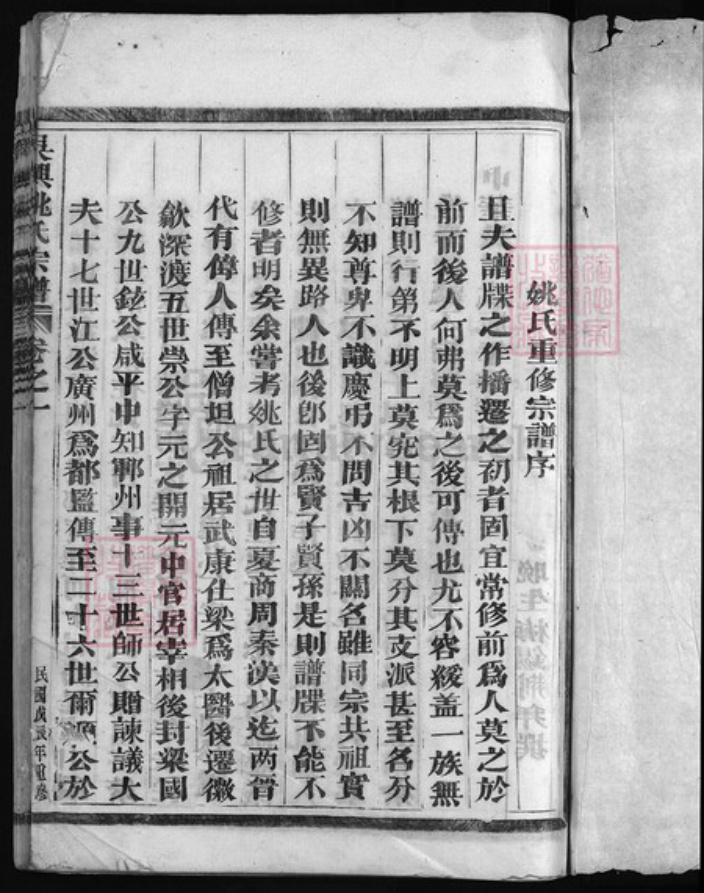 姚氏重修宗譜序
且夫譜牒之作播遷之初者固宜常修前爲人莫之於
前而後人何弗莫爲之後可傳也尤不容緩盖一族無
譜則行第不明上莫究其根下莫分其支派甚至名分
不知尊卑不識慶弔不問吉凶不關名雖同宗共祖實
則無異路人也後卽固爲賢子賢孫是則譜牒不能不
修者明矣余嘗考姚氏之世自夏商周秦漢以迄两晉
代有偉人傳至僧坦公祖居武康仕梁爲太醫後遷徽
歙深渡五世崇公字元之開元中官居宰相後封梁國
公九世鉉公咸平中知鄆州事十三世師公贈諫議大
夫十七世江公廣州爲都監傳至二十六世爾公於
吴興姚氏宗譜
卷之一
民國戊辰年重修